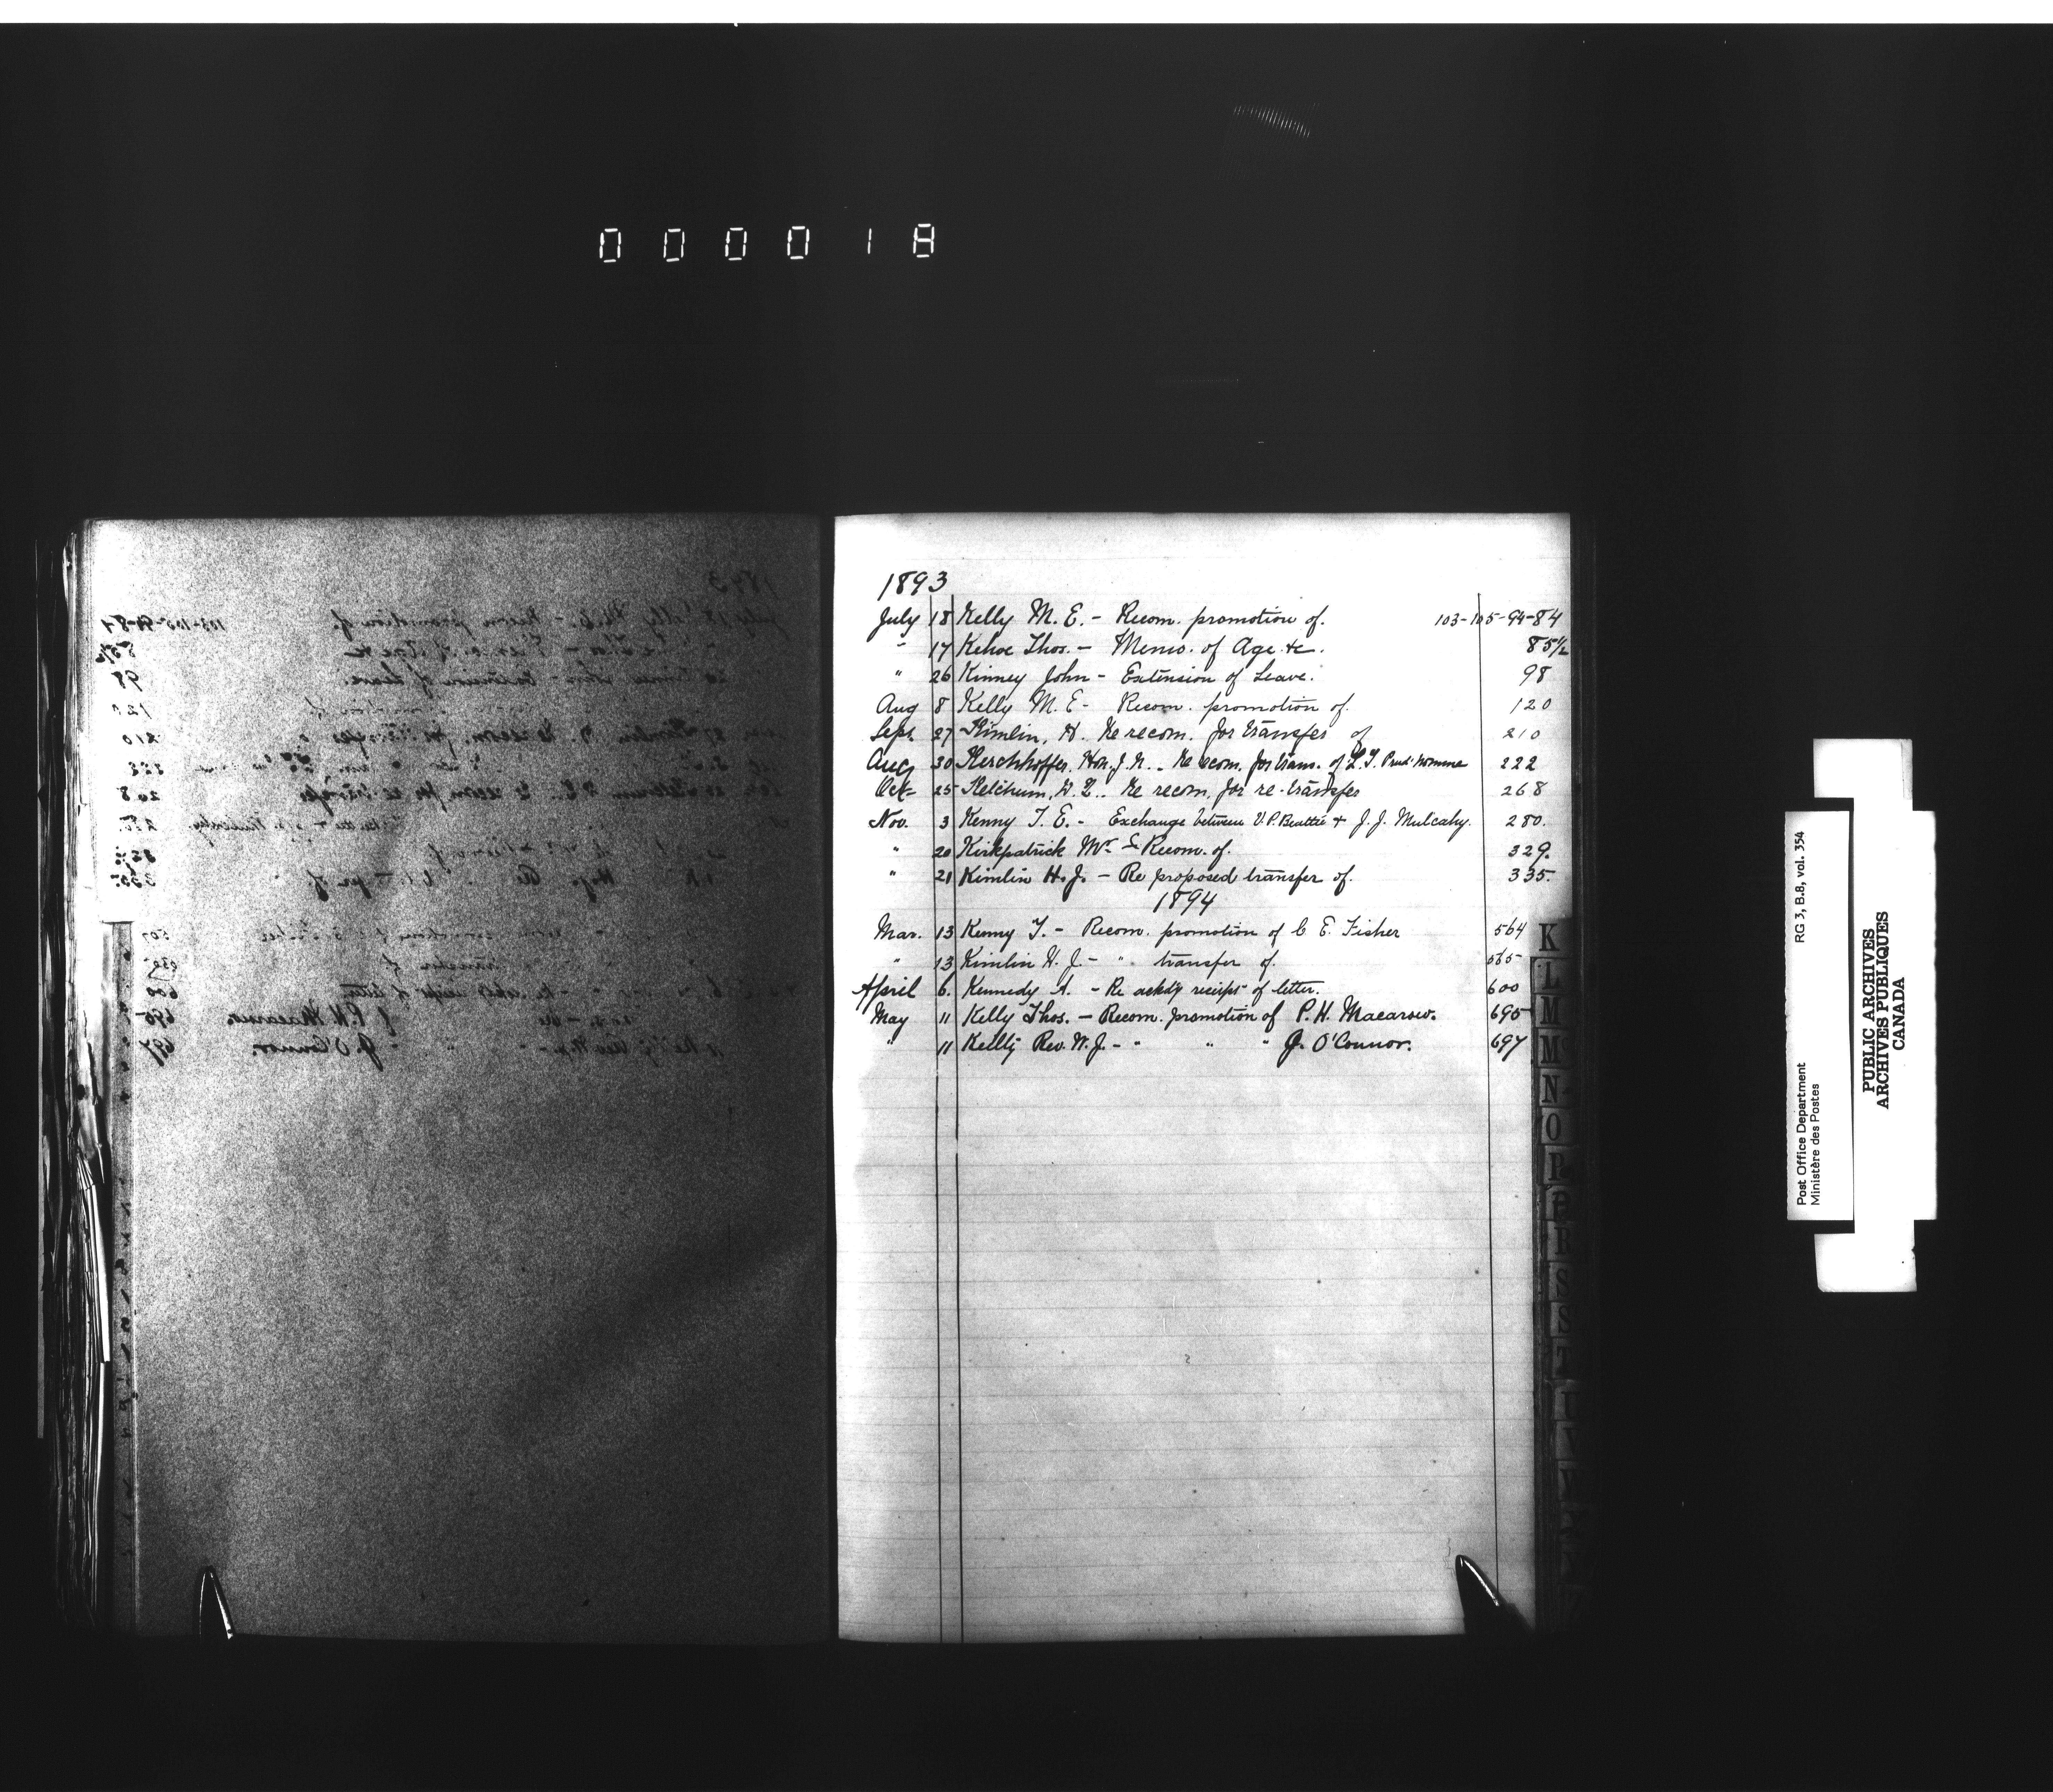 000018
1893
July 18 Kelly M. E. - Recom. promotion of. 103-105-94-84
" 17 Kehoe Thos. - Memo. of Age &c. 85½
" 26 Kinney John - Extension of Leave. 98
Aug 8 Kelly M. E - Recom. promotion of. 120
Sept. 27 Kimlin, H. Re recom. for transfer of 210
Aug 30 Kerchhoffer, Hon. J. N. - Re recom. for trans. of L. T. Prud'homme 222
Oct 25 Ketchum, Re recom. for re-transfer 268
Nov. 3 Kenny T. E. - Exchange between V. P. Beattie & J. J. Mulcahy. 280.
" 20 Kirkpatrick Mr - Recom. of. 329.
" 21 Kimlin H. J. - Re proposed transfer of. 335.
1894
Mar. 13 Kenny T. - Recom. promotion of C E. Fisher 564
" 13 Kimlin H. J. - " transfer of. 565
April 6. Kennedy A. - Re ackd'g receipt of letter. 600
May 11 Kelly Thos. - Recom. promotion of P. H. Macarow. 695
" 11 Kelly Rev. W. J. - " " " J. O'Connor. 697
K
L
M
M
N
O
P
S
S
Post Office Department RG 3, B.8, vol. 354
Ministère des Postes
PUBLIC ARCHIVES
ARCHIVES PUBLIQUES
CANADA